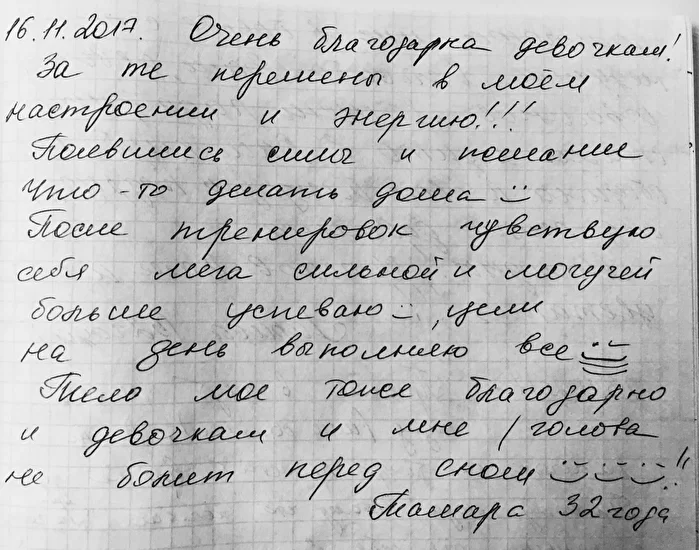 16.11.2017. Очень благодарна девочкам!
За те перемены в моём
настроении и энергию!!!
Появились силы и желание
что-то делать дома :)
После тренировок чувствую
себя мега сильной и могучей
больше успеваю :), цели
на день выполняю все :)
Тело мое тоже благодарно
и девочкам и мне / голова
не болит перед сном :) :) :)!!
Тамара 32 года